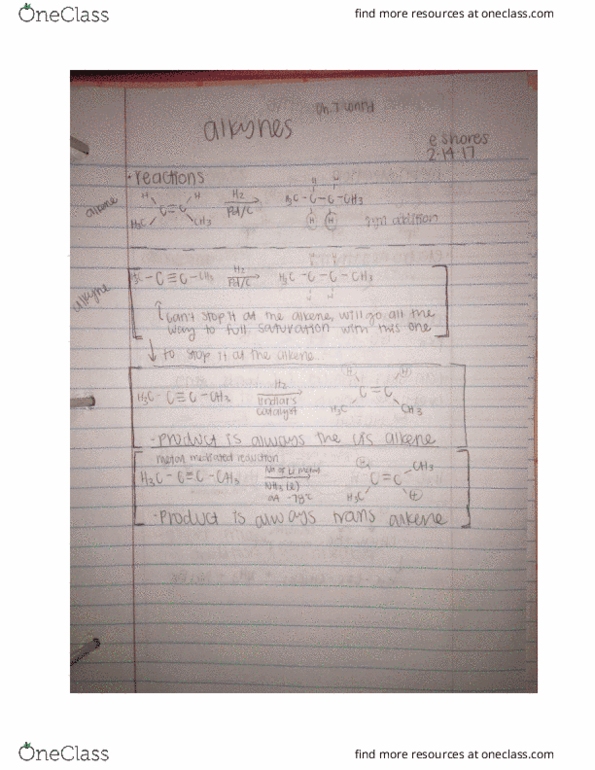 OneClass
find more resources at oneclass.com
alkynes
e shores
2.14.17
• reactions
alkene
H H H2 H H
C=C Pd/C H3C-C-C-CH3
H3C CH3 H H syn addition
alkyne
H3C-C≡C-CH3 H2 Pd/C H3C-C-C-C-CH3
can't stop it at the alkene, will go all the
way to full saturation with this one
↓ to stop it at the alkene.
H3C-C≡C-CH3 H2 lindlar's catalyst H C=C H
H3C CH3
-product is always the cis alkene
metal mediated reduction
H3C-C≡C-CH3 Na or Li metal NH3 (l) at -78°C H C=C CH3
H3C H
-product is always trans alkene
OneClass
find more resources at oneclass.com